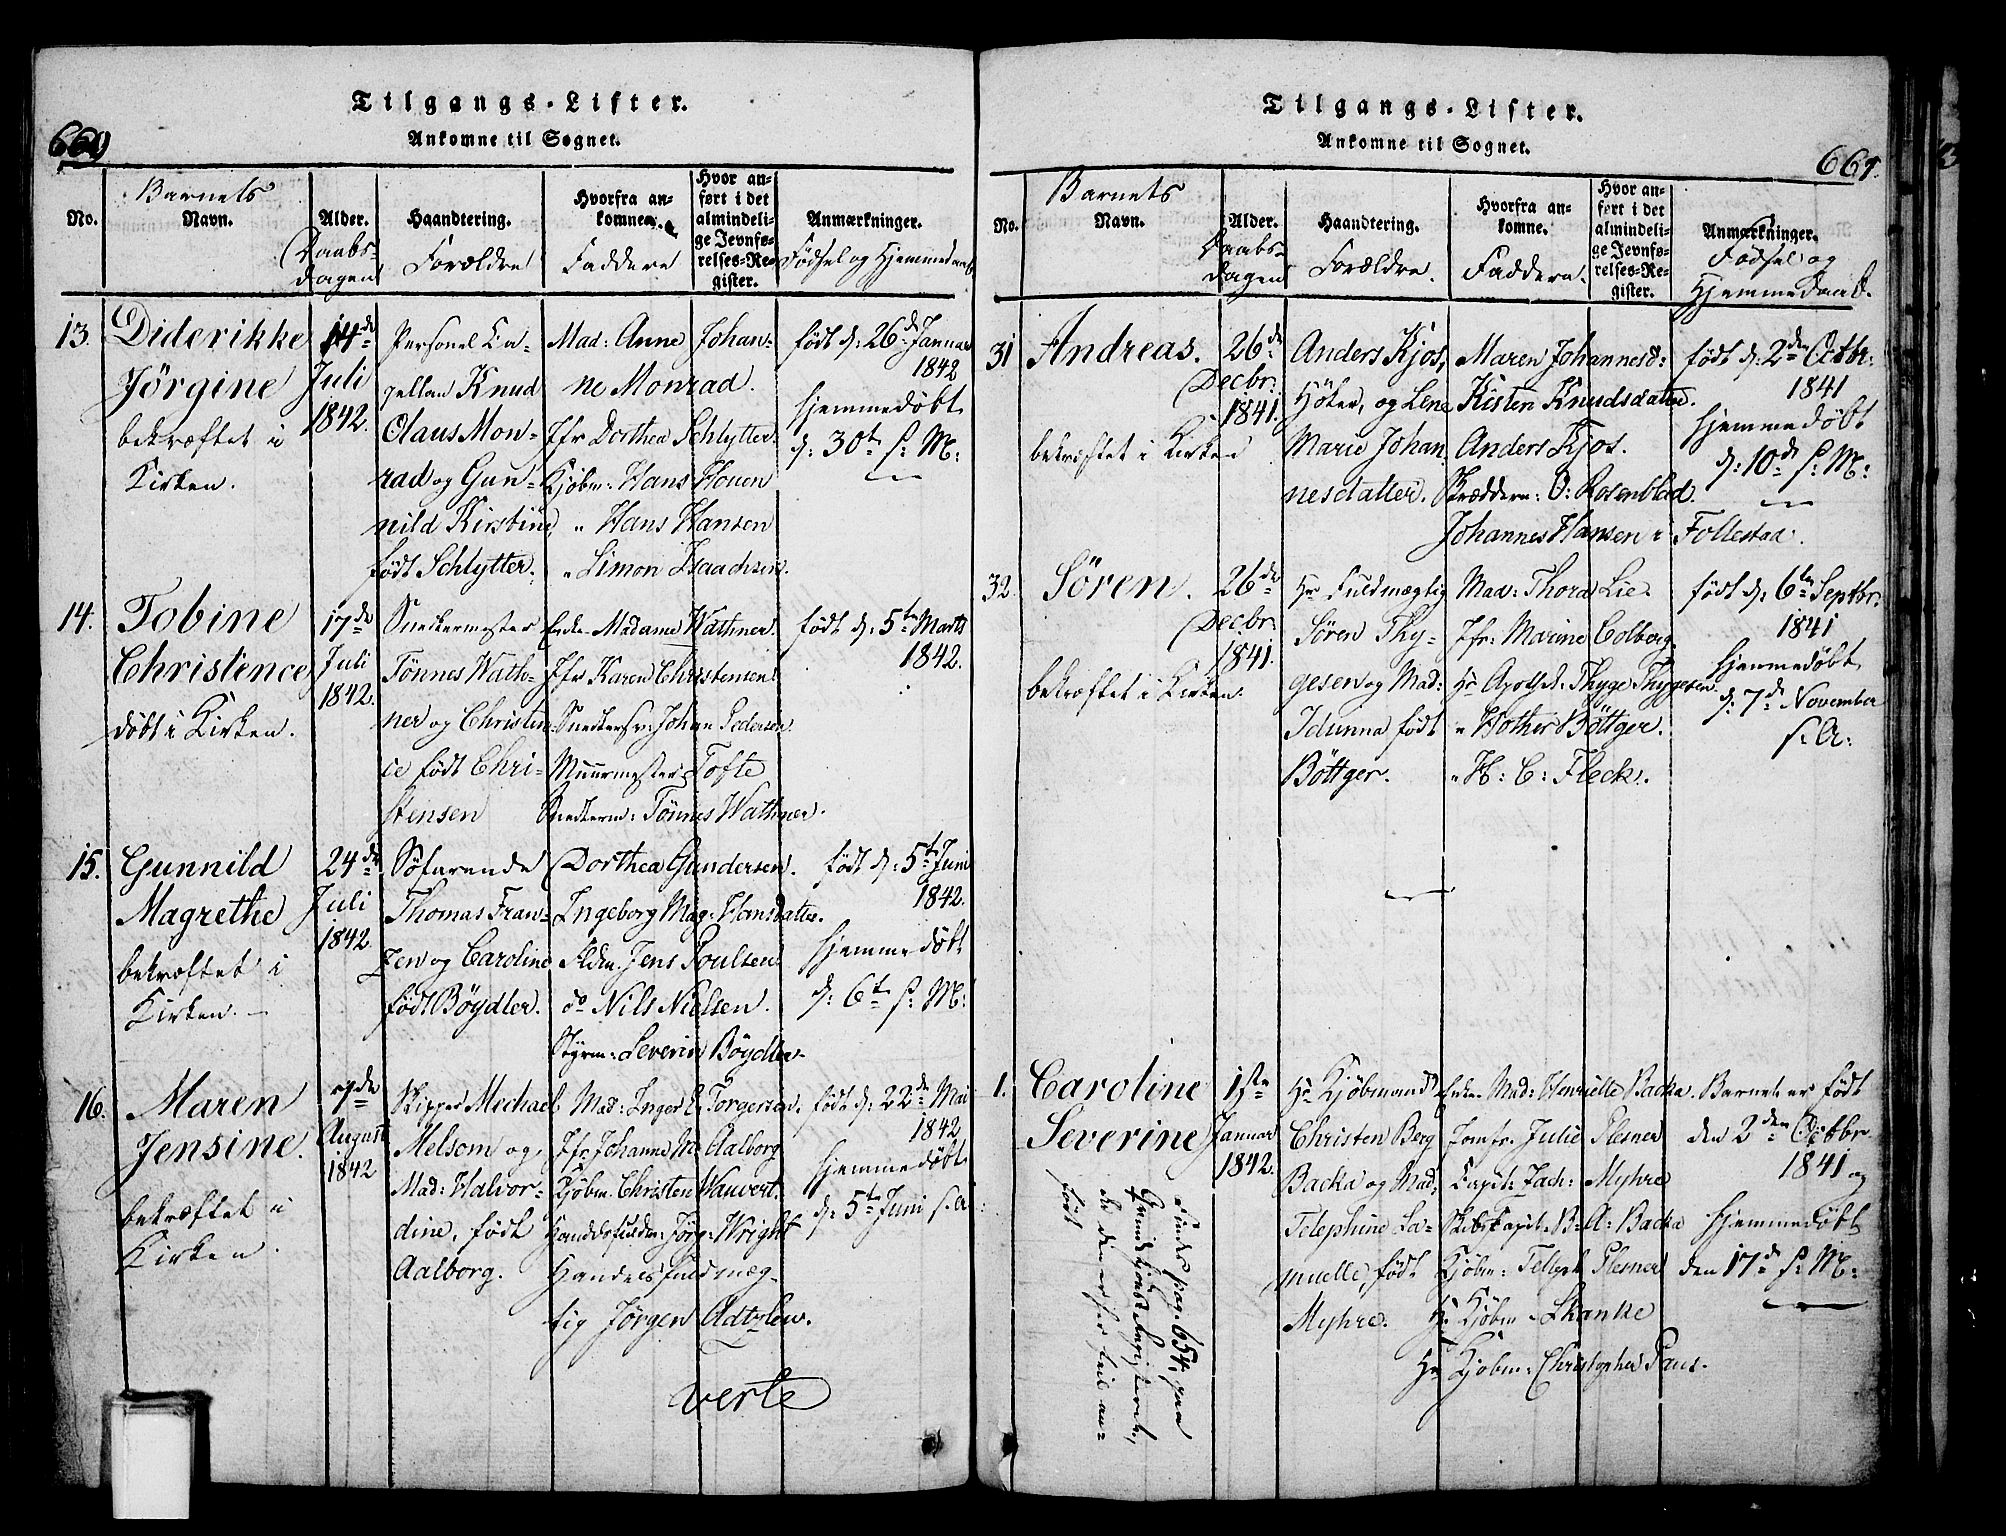 660
Tilgangs-Lister.
Ankomne til Sognet.
No.
Barnets
Navn.
Alder.
Daabs-
dagen
Haandtering.
Forældre
Hvorfra an-
komne.
Faddere
Hvor an-
ført i det
almindeli-
ge Jevnfø-
relses-Re-
gister.
Anmærkninger.
Fødsel og Hjemmedaab
13.
Diderikke
Jörgine
bekræftet i
Kirken.
14de
Juli
1842.
Personel Ca-
pellan Knud
Olaus Mon-
rad og Gun-
nild Kirstine
født Schlytter.
Mad: Anne Johan-
ne Monrad.
Jfr Dorthea Schlytter.
Kjöbm: Hans Houen
" Hans Hansen
" Simon Isaachsen.
født d: 26de Januar
1842
hjemmedøbt
d: 30te s: M:
14.
Tobine
Christence
døbt i Kirken.
17de
Juli
1842.
Snedkermester
Tönnes Wath-
ner og Christen-
ce født Chri-
stensen
Enke Madame Wathner.
Jfr Karen Christensen
Snedkersv: Johan Pedersen.
Muurmester Tofte
Snedkerm: Tönnes Wathner.
født d: 5te Marts
1842.
15.
Gunnild
Magrethe
bekræftet i
Kirken.
24de
Juli
1842
Söfarende
Thomas Fran-
zen og Caroline
født Böydler.
Dorthea Gundersen.
Ingeborg Mag: Hansdatter.
Jens Poulsen
do Nils Nielsen.
Styrm: Severin Böydler
født d: 5te Juni
1842.
hjemmedøbt
d: 6te s: M:
16.
Maren
Jensine.
bekræftet i
Kirken.
7de
August
1842
Skipper Mechael
Melsom og
Mad: Halvor-
dine, født
Aalborg.
Mad: Inger E. Torgersen.
Jfr Johanne M. Aalborg
Kjöbm. Christen Wauvert.
Handelsfuldm: Jörg: Wright
Handelsfuldmæg-
tig Jörgen Adtzlew.
født d: 22de Mai
1842
hjemmedøbt
d: 5te Juni s: A:
verte
661.
Tilgangs-Lister.
Ankomne til Sognet.
No.
Barnets
Navn.
Alder.
Daabs-
dagen
Haandtering.
Forældre.
Hvorfra an-
komne.
Faddere.
Hvor an-
ført i det
almindeli-
ge Jevnfø-
relses-Re-
gister.
Anmærkninger.
Fødsel og
Hjemmedaab.
31
Andreas.
bekræftet i Kirken
26de
Decbr:
1841.
Anders Kjos,
Höker, og Lene
Marie Johan-
nesdatter.
Maren Johannesd:
Kisten Knudsdatter.
Anders Kjos.
Skrædderm: O: Rosenblad
Johannes Hansen i Follestad.
født d: 2den Octbr:
1841
hjemmedøbt
d: 10de s: M:
32.
Sören.
bekræftet i Kirken.
26de
Decbr:
1841.
Hr Fuldmægtig
Sören Thy-
gesen og Mad:
Idunna født
Böttger.
Mad: Thora Lie
Jfr: Marine Colborg.
Hr Apothek: Thyge Thygesen.
" Hother Böttger.
" H: C: Fleck.
født d: 6te Septbr:
1841
hjemmedøbt
d: 7de November
s: A:
1.
Caroline
Severine
1ste
Januar
1842.
Hr Kjöbmand
Christen Berg
Backa og Mad:
Telephine Sa-
muelle, født
Myhre.
Enke Mad: Henriette Backa.
Jomfr. Julie Plesner
Capit: Zach: Myhre
Skibskapit. B: A: Backa
Kjöbm: Tellef Plesner
Hr Kjöbm Skanke
Hr Kjöbm: Christopher Paus.
Barnet er født
den 2den Octbr.
1841 og
hjemmedøbt
den 17de s: M:
findes pag. 654, paa
Qvindekjöns Registeret,
da den er her feil an-
ført